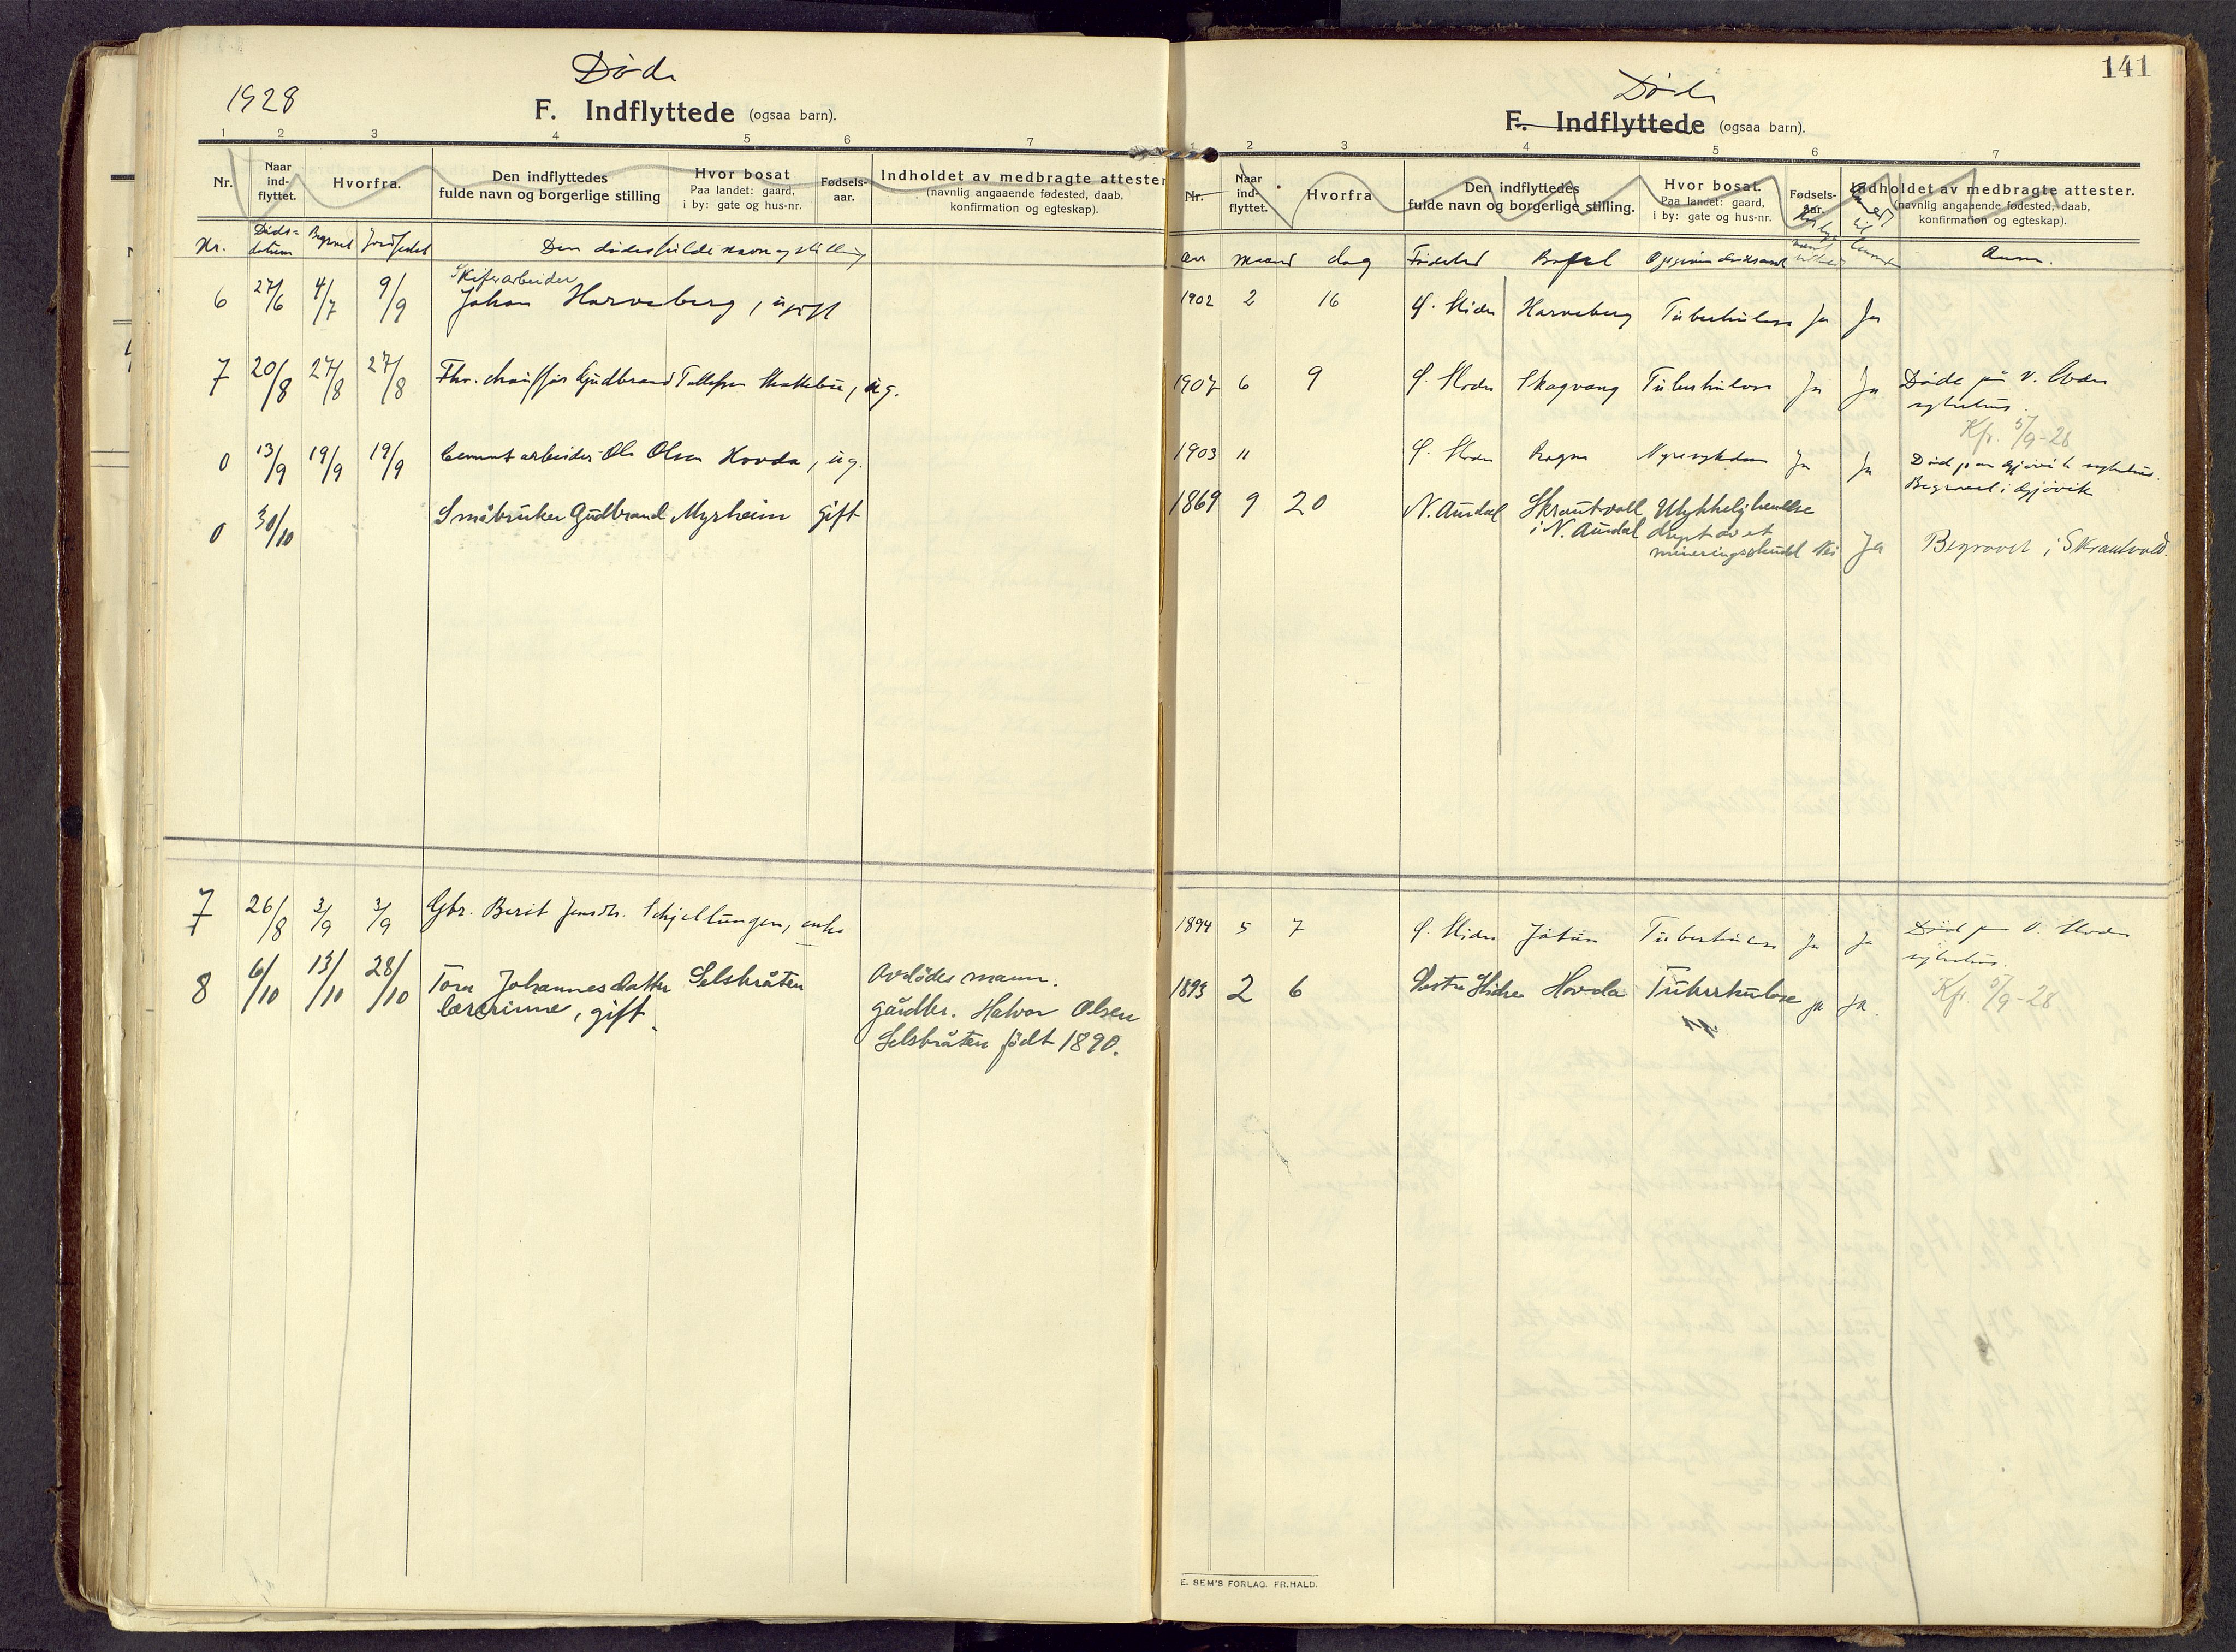 1928
Døde
F. Indflyttede (ogsaa barn).
1 2 3 4 5 6 7
Nr. Naar ind-flyttet. Hvorfra. Den indflyttedes fulde navn og borgerlige stilling Hvor bosat Paa landet: gaard, i by: gate og hus-nr. Fødsels-aar. Indholdet av medbragte attester (navnlig angaaende fødested, daab, konfirmation og egteskap).
Nr. Døds-datum Begravet Jordfestet Den dødes fulde navn og stilling
Skiferarbeider
6 27/6 4/7 9/9 Johan Harveberg, ugift
7 20/8 27/8 27/8 Fhv. chauffør Gudbrand Tollefsen Skattebu, ug.
0 13/9 19/9 19/9 Cementarbeider Ole Olsen Hovda, ug.
0 30/10 Småbruker Gudbrand Myrheim gift
7 26/8 3/9 3/9 Gbr. Berit Jensdtr. Schjellungen, enke
8 6/10 13/10 28/10 Tora Johannesdatter Selsbråten Avdødes mann.
lærerinne, gift. gårdbr. Halvor Olsen
Selsbråten født 1890.
141
Døde
F. Indflyttede (ogsaa barn).
1 2 3 4 5 6 7
Nr. Naar ind-flyttet. Hvorfra Den indflyttedes fulde navn og borgerlige stilling. Hvor bosat. Paa landet: gaard, i by: gate og hus-nr. Fødsels-aar. Indholdet av medbragte attester. (navnlig angaaende fødested, daab, konfirmation og egteskap).
aar maaned dag Fødested Bopæl Opgiven dødsaarsak Anm.
1902 2 16 Ø. Slidre Harveberg Tuberkulose Ja Ja
1907 6 9 Ø. Slidre Skogvang Tuberkulose Ja Ja Døde på V. Slidre
sykehus.
Kfr. 5/9-28
1903 11 Ø. Slidre Rogne Nyresykdom Ja Ja Død på Gjøvik sykehus.
Begravet i Gjøvik
1869 9 20 N. Aurdal Skrautvoll Ulykkeligheendelse
i N. Aurdal drept av et
mineringsskudd Nei Ja Begravet i Skrautvold.
1894 5 7 Ø. Slidre Jotun Tuberkulose Ja Ja Død på V. Slidre
sykehus.
1893 2 6 Vestre Slidre Hovda Tuberkulose ja ja. Kfr. 5/9-28
E. SEM'S FORLAG. FR.HALD.